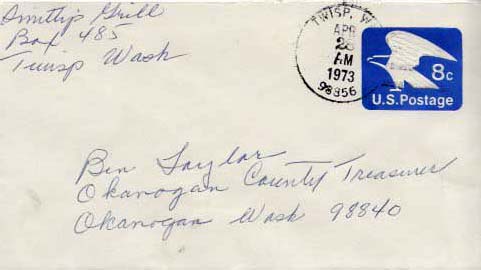 Smitty Grill
Box 485
Twisp Wash
TWISP, W
APR
28
AM
1973
98856
8c
U.S. Postage
Ben Taylor
Okanogan County Treasurer
Okanogan Wash 98840